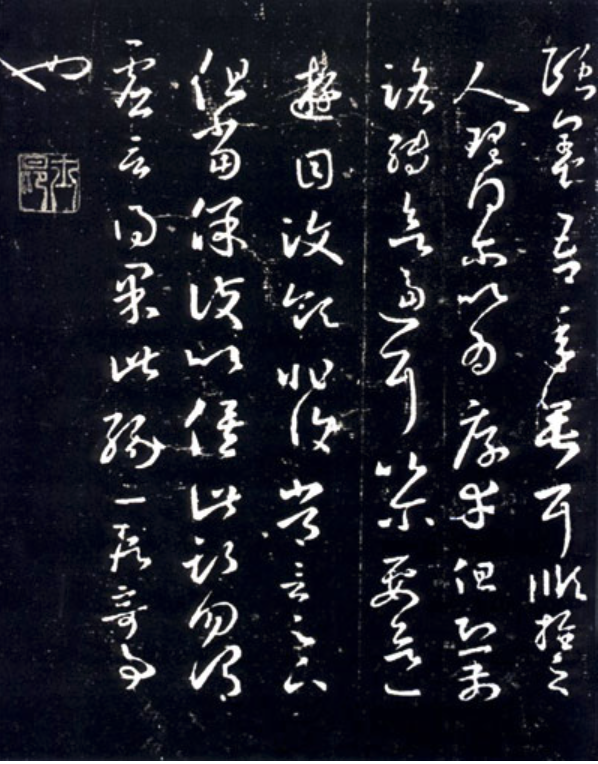 頤養吾年垂耳順推之
人理得尔以為厚幸但恐前
路轉欲逼耳以尔要欲一
遊目汶領非復常言足下
但當保護以俟此期勿謂
虛言得果此緣一段奇事
也